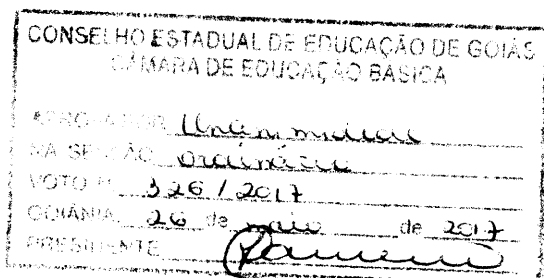 CONSELHO ESTADUAL DE EDUCAÇÃO DE GOIÁS
CÂMARA DE EDUCAÇÃO BÁSICA
APROVADO POR Unanimidade
NA SESSÃO ordinária
VOTO N. 326 / 2017
GOIÂNIA, 26 de maio de 2017
PRESIDENTE